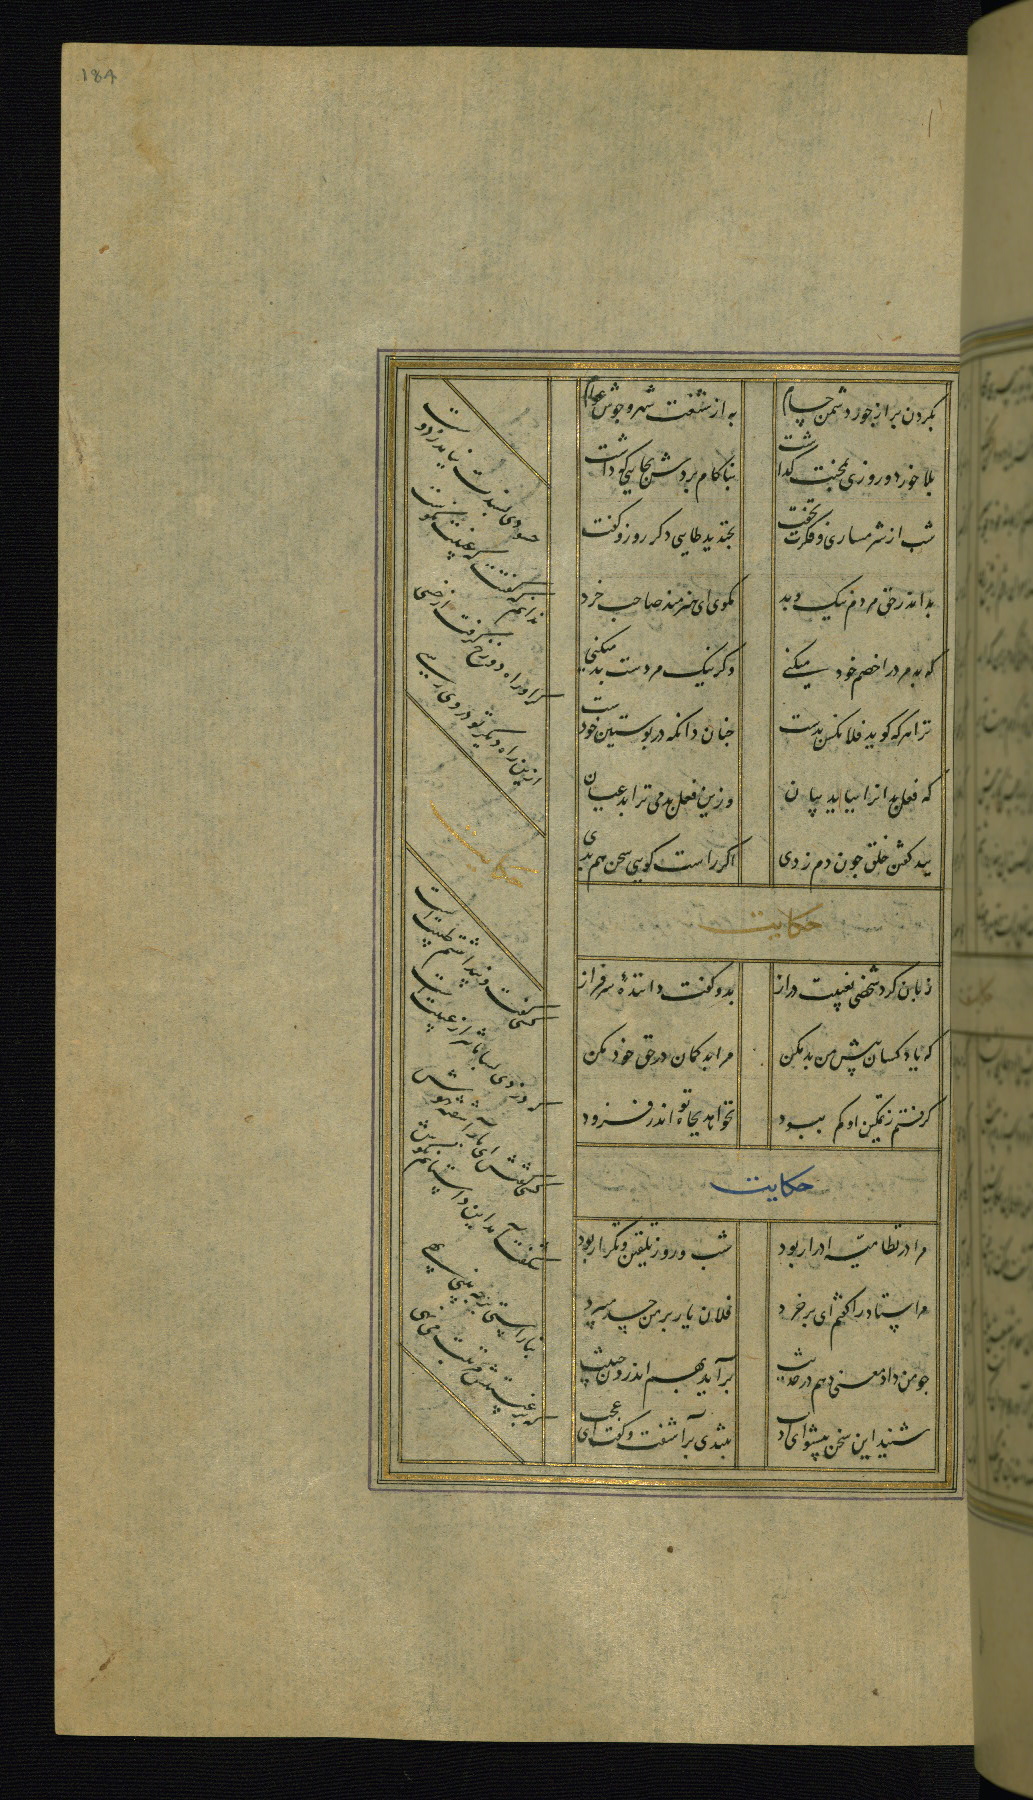 184
بکردن بر از جور دشمن حسام
به از شنعت شهر و جوش عوام
بلا خورد و روزی بمحنت گذاشت
بناکام بردش بجایی که داشت
شب از شرمساری و فکرت نخفت
بخندید طایی دگر روز و گفت
بد اندر حق مردم نیک و بد
مگوی ای هنرمند صاحب خرد
که بد مرد را خصم خود میکنی
وگر نیک مردست بد میکنی
ترا هر که گوید فلانکس بدست
چنان دانکه در پوستین خودست
که فعل بد انرا بباید بیان
وزین فعل بد می ترابد عیان
ببد گفتن خلق چون دم زدی
اگر راست گویی سخن هم بدی
حکایت
زبان کرد شخصی بغیبت دراز
بدو گفت دانندهٔ سرفراز
که یاد کسان پیش من بد مکن
مرا بد گمان در حق خود مکن
گرفتم ز تمکین او کم ببود
نخواهد بجاه تو اندر فزود
حکایت
مرا در نظامیه ادرار بود
شب و روز تلقین و تکرار بود
مر استاد را گفتم ای پر خرد
فلان یار بر من حسد میبرد
چو من داد معنی دهم در حدیث
برآید بهم اندرون خبیث
شنید این سخن پیشوای ادب
بتندی برآشفت و گفت ای عجب
حسودی پسندت نیامد ز دوست
ندانم که گفتت که غیبت نکوست
گر او راه دوزخ گرفت از خسی
ازین راه دیگر تو در وی رسی
حکایت
کسی گفت و پنداشتم طیبت است
که دزدی بسامان تر از غیبت است
کسی گفتش ای یار آشفته هوش
شگفت آمد این داستانم بگوش
بناراستی در چه بینی بهی
که بر غیبتش مرتبت می نهی